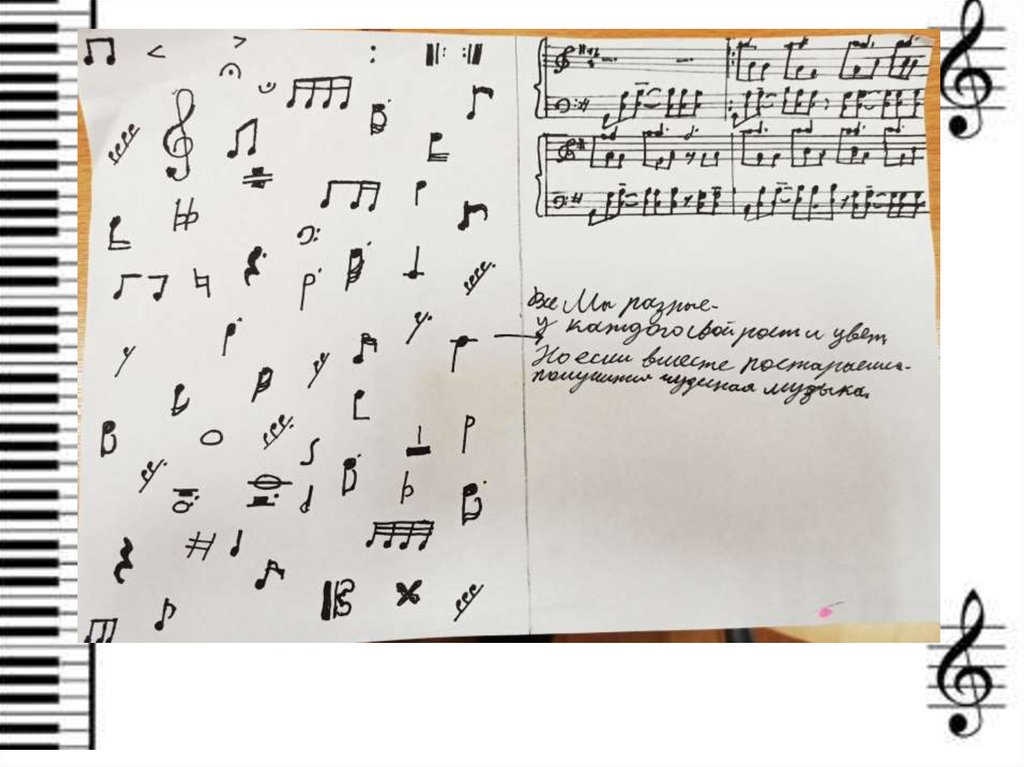 Все Мы разные-
у каждого свой рост и цвет
Но если вместе постараемся-
получится чудесная музыка.